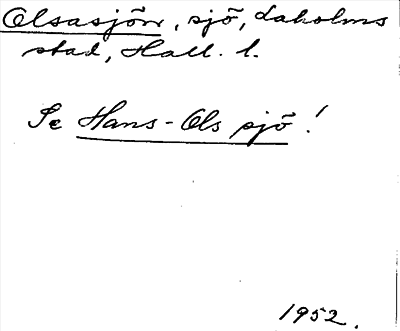 Olsasjön, sjö, Laholms
stad, Hall. l.
Se Hans-Ols sjö!
1952.